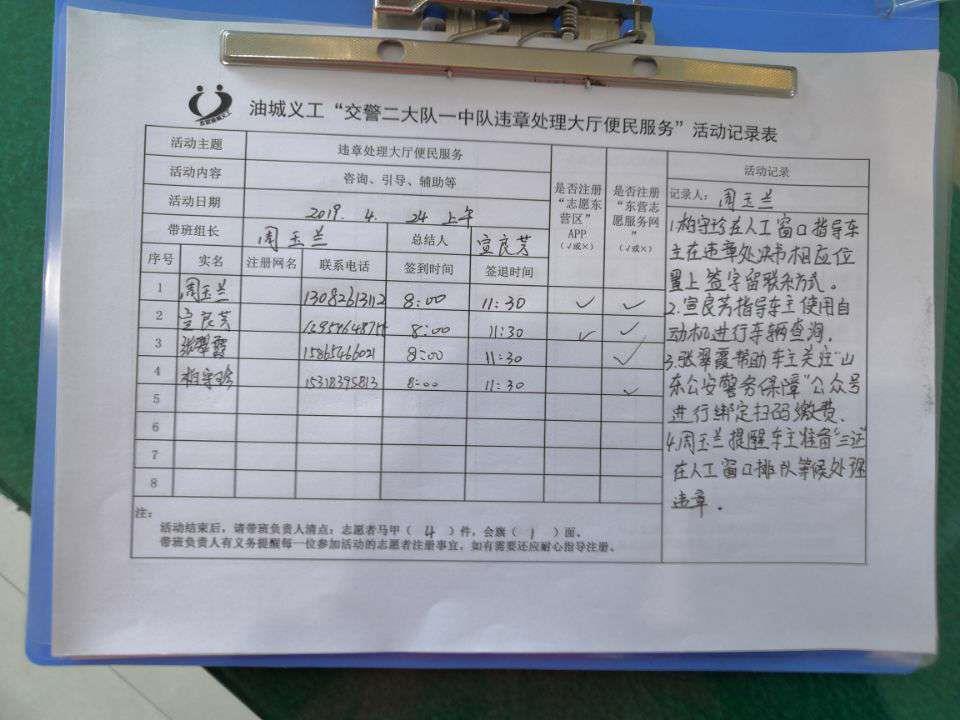 油城义工“交警二大队一中队违章处理大厅便民服务”活动记录表
活动主题 违章处理大厅便民服务
活动内容 咨询、引导、辅助等
活动日期 2019. 4. 24 上午
带班组长 周玉兰 总结人 宣良芳
是否注册“志愿东营区”APP（√或×）
是否注册“东营志愿服务网”（√或×）
序号 实名 注册网名 联系电话 签到时间 签退时间
1 周玉兰 13082613112 8:00 11:30 ✓ ✓
2 宣良芳 8:00 11:30 ✓ ✓
3 张翠霞 15865466021 8:00 11:30 ✓
4 柏守珍 15318395813 8:00 11:30 ✓
5
6
7
8
注：
活动结束后，请带班负责人清点：志愿者马甲（ 4 ）件，会旗（ 1 ）面、
带班负责人有义务提醒每一位参加活动的志愿者注册事宜，如有需要还应耐心指导注册、
活动记录
记录人：周玉兰
1.柏守珍在人工窗口指导车
主在违章处决书相应位
置上签字留联系方式。
2.宣良芳指导车主使用自
动机进行车辆查询.
3.张翠霞帮助车主关注“山
东公安警务保障”公众号
进行绑定扫码缴费、
4.周玉兰提醒车主准备“三证”
在人工窗口排队等候处理
违章.